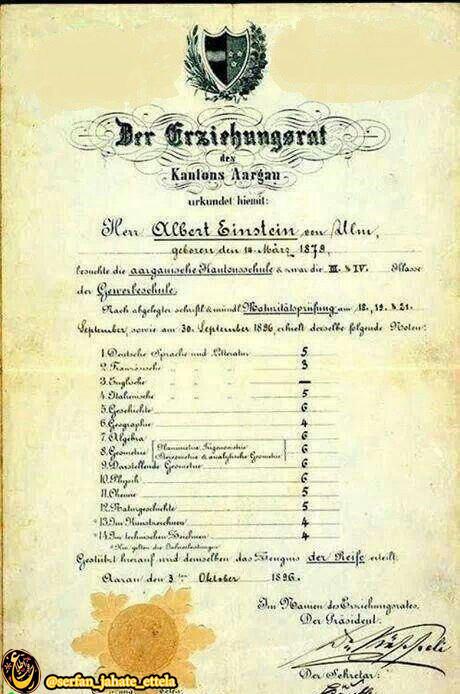 Der Erziehungsrat
des
Kantons Aargau
urkundet hiemit:
Herr Albert Einstein von Ulm,
geboren den 14. März 1879,
besuchte die aargauische Kantonsschule & zwar die III. & IV. Klasse
der Gewerbeschule.
Nach abgelegter schriftl. & mündl. Maturitätsprüfung am 18., 19. & 21.
September, sowie am 30. September 1896, erhielt derselbe folgende Noten:
1. Deutsche Sprache und Litteratur 5
2. Französische " " " 3
3. Englische " " " —
4. Italienische " " " 5
5. Geschichte 6
6. Geographie 4
7. Algebra 6
8. Geometrie (Planimetrie, Trigonometrie 6
Stereometrie & analytische Geometrie)
9. Darstellende Geometrie 6
10. Physik 6
11. Chemie 5
12. Naturgeschichte 5
*13. Im Kunstzeichnen 4
*14. Im technischen Zeichnen 4
* Hier gelten die Jahresleistungen.
Gestützt hierauf wird demselben das Zeugnis der Reife erteilt.
Aarau den 3ten Oktober 1896.
Im Namen des Erziehungsrates,
Der Präsident:
Der Sekretär:
@serfan_jahate_ettela